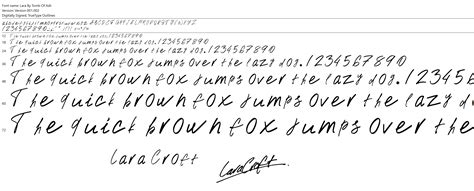 Font name: Lara By Fonts Of Ash
Version: Version 001.000
Digitally Signed, TrueType Outlines
abcdefghijklmnopqrstuvwxyz ABCDEFGHIJKLMNOPQRSTUVWXYZ
The quick brown fox jumps over the lazy dog. 1234567890
The quick brown fox jumps over the lazy dog. 1234567890
The quick brown fox jumps over the lazy dog. 1234567890
The quick brown fox jumps over the lazy dog. 1234567890
The quick brown fox jumps over the lazy dog. 123456
The quick brown fox jumps over the lazy do
The quick brown fox jumps over the
Lara Croft
Lara Croft